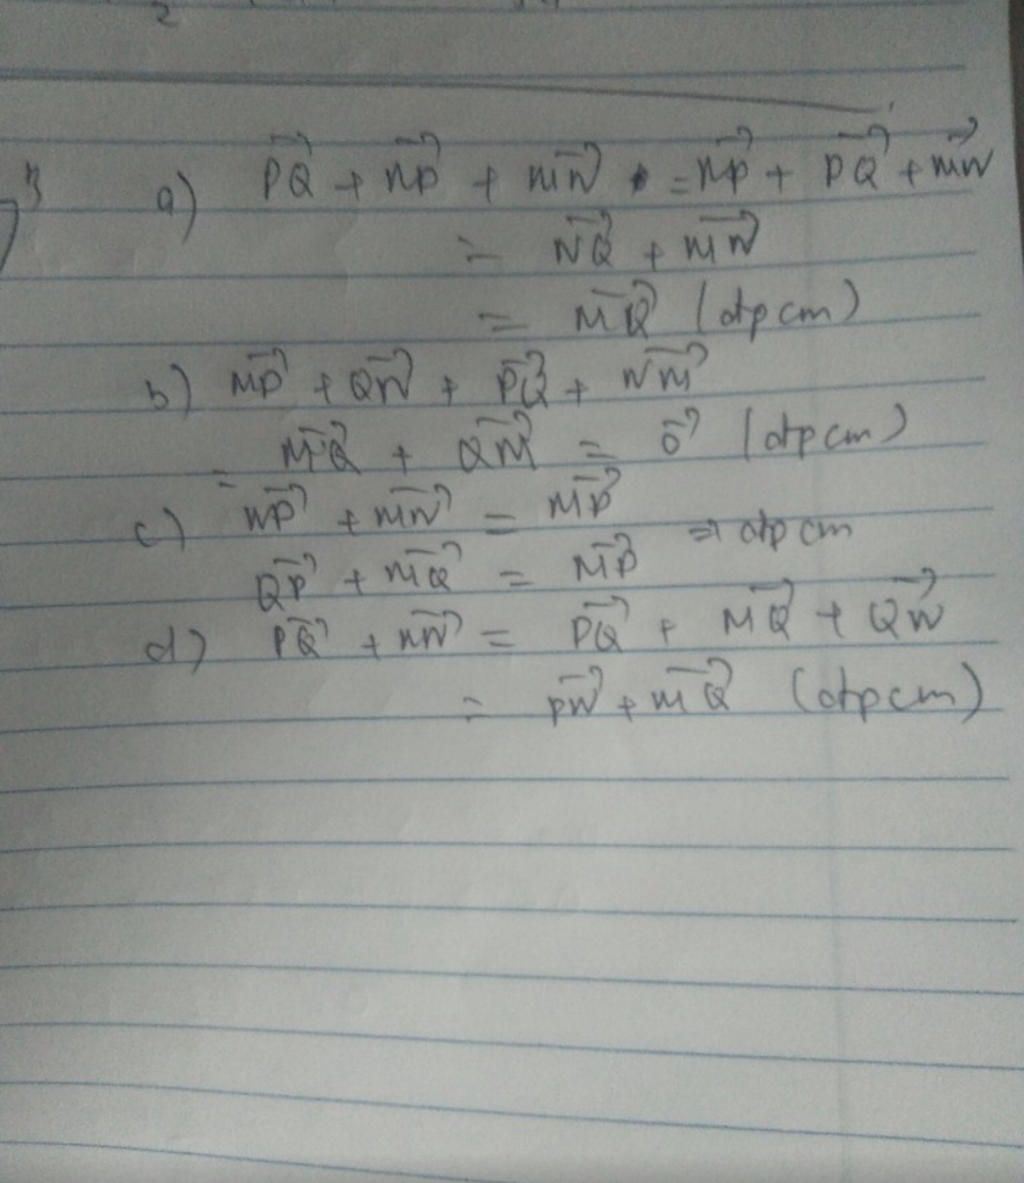 2
a) PQ⃗ + NP⃗ + MN⃗ = NP⃗ + PQ⃗ + MN⃗
= NQ⃗ + MN⃗
= MQ⃗ (đpcm)
b) MP⃗ + QN⃗ + PQ⃗ + NM⃗
= MQ⃗ + QM⃗ = 0⃗ (đpcm)
c) NP⃗ + MN⃗ = MP⃗
⇒ đpcm
QP⃗ + MQ⃗ = MP⃗
d) PQ⃗ + MN⃗ = PQ⃗ + MQ⃗ + QN⃗
= PN⃗ + MQ⃗ (đpcm)